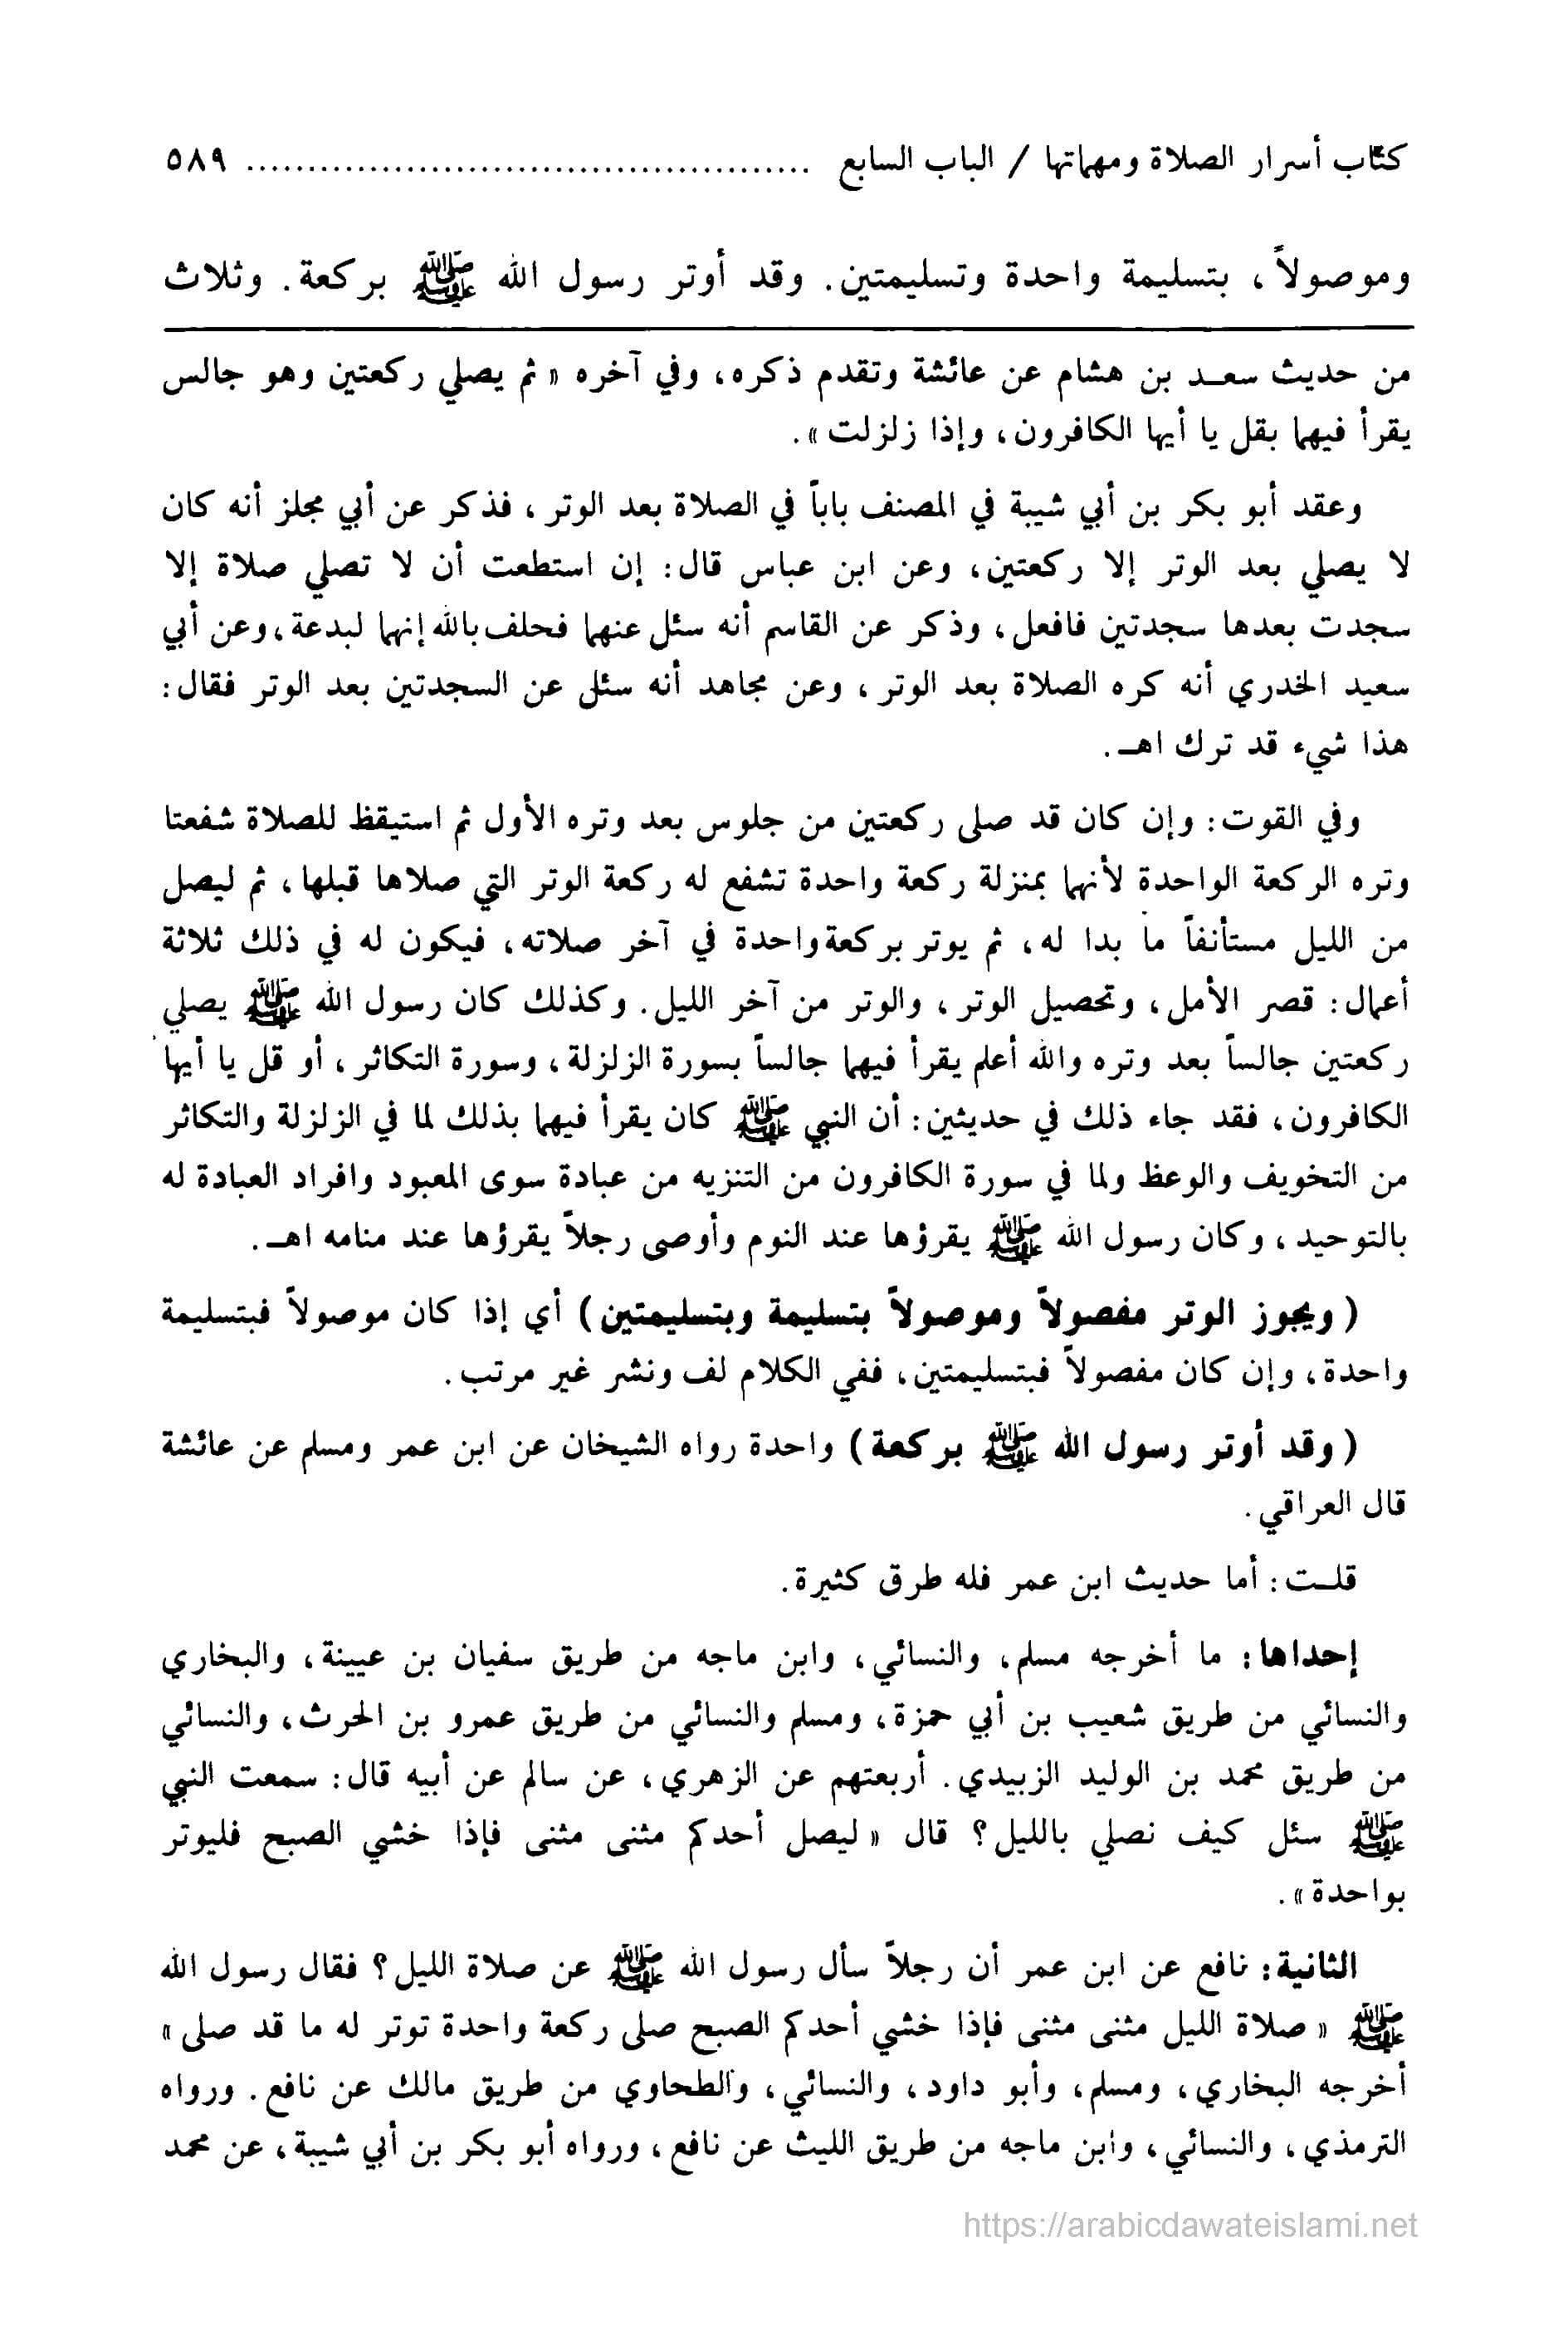 كتاب أسرار الصلاة ومهماتها / الباب السابع ............................................. ٥٨٩
وموصولاً، بتسليمة واحدة وتسليمتين. وقد أوتر رسول الله ﷺ بركعة. وثلاث
من حديث سعـد بن هشام عن عائشة وتقدم ذكره، وفي آخره « ثم يصلي ركعتين وهو جالس
يقرأ فيهما بقل يا أيها الكافرون، وإذا زلزلت ».
وعقد أبو بكر بن أبي شيبة في المصنف باباً في الصلاة بعد الوتر، فذكر عن أبي مجلز أنه كان
لا يصلي بعد الوتر إلا ركعتين، وعن ابن عباس قال: إن استطعت أن لا تصلي صلاة إلا
سجدت بعدها سجدتين فافعل، وذكر عن القاسم أنه سئل عنهما فحلف بالله إنهما لبدعة، وعن أبي
سعيد الخدري أنه كره الصلاة بعد الوتر، وعن مجاهد أنه سئل عن السجدتين بعد الوتر فقال:
هذا شيء قد ترك اهـ.
وفي القوت: وإن كان قد صلى ركعتين من جلوس بعد وتره الأول ثم استيقظ للصلاة شفعتا
وتره الركعة الواحدة لأنهما بمنزلة ركعة واحدة تشفع له ركعة الوتر التي صلاها قبلها، ثم ليصل
من الليل مستأنفاً ما بدا له، ثم يوتر بركعة واحدة في آخر صلاته، فيكون له في ذلك ثلاثة
أعمال: قصر الأمل، وتحصيل الوتر، والوتر من آخر الليل. وكذلك كان رسول الله ﷺ يصلي
ركعتين جالساً بعد وتره والله أعلم يقرأ فيهما جالساً بسورة الزلزلة، وسورة التكاثر، أو قل يا أيها
الكافرون، فقد جاء ذلك في حديثين: أن النبي ﷺ كان يقرأ فيهما بذلك لما في الزلزلة والتكاثر
من التخويف والوعظ ولما في سورة الكافرون من التنزيه من عبادة سوى المعبود وافراد العبادة له
بالتوحيد، وكان رسول الله ﷺ يقرؤها عند النوم وأوصى رجلاً يقرؤها عند منامه اهـ.
(ويجوز الوتر مفصولاً وموصولاً بتسليمة وبتسليمتين) أي إذا كان موصولاً فبتسليمة
واحدة، وإن كان مفصولاً فبتسليمتين، ففي الكلام لف ونشر غير مرتب.
(وقد أوتر رسول الله ﷺ بركعة) واحدة رواه الشيخان عن ابن عمر ومسلم عن عائشة
قال العراقي.
قلـت: أما حديث ابن عمر فله طرق كثيرة.
إحداها: ما أخرجه مسلم، والنسائي، وابن ماجه من طريق سفيان بن عيينة، والبخاري
والنسائي من طريق شعيب بن أبي حمزة، ومسلم والنسائي من طريق عمرو بن الحرث، والنسائي
من طريق محمد بن الوليد الزبيدي. أربعتهم عن الزهري، عن سالم عن أبيه قال: سمعت النبي
ﷺ سئل كيف نصلي بالليل؟ قال « ليصل أحدكم مثنى مثنى فإذا خشي الصبح فليوتر
بواحدة ».
الثانية: نافع عن ابن عمر أن رجلاً سأل رسول الله ﷺ عن صلاة الليل؟ فقال رسول الله
ﷺ « صلاة الليل مثنى مثنى فإذا خشي أحدكم الصبح صلى ركعة واحدة توتر له ما قد صلى »
أخرجه البخاري، ومسلم، وأبو داود، والنسائي، والطحاوي من طريق مالك عن نافع. ورواه
الترمذي، والنسائي، وابن ماجه من طريق الليث عن نافع، ورواه أبو بكر بن أبي شيبة، عن محمد
https://arabicdawateislami.net